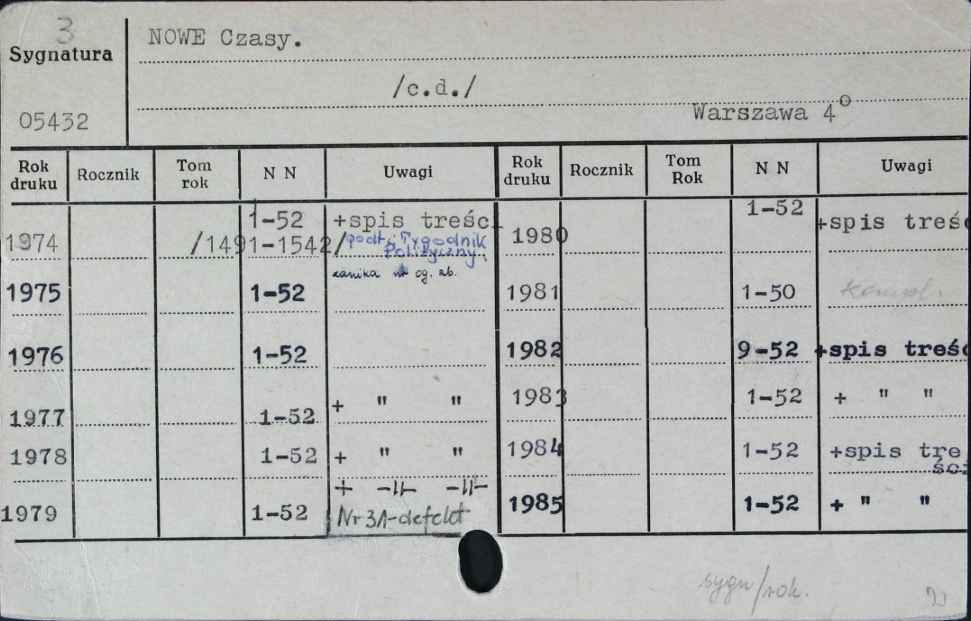 3
NOWE Czasy.
Sygnatura
/c.d./
05432
Warszawa 4°
Rok druku Rocznik Tom rok N N Uwagi Rok druku Rocznik Tom Rok N N Uwagi
1974 /1491-1542/ 1-52 +spis treści
podt: Tygodnik
Polityczny.
zanika nr og. zb.
1975 1-52
1976 1-52
1977 1-52 + " "
1978 1-52 + " "
1979 1-52 + -//- -//-
Nr 31-defekt
1980 1-52 +spis treśc
1981 1-50 kompl.
1982 9-52 +spis treśc
1983 1-52 + " "
1984 1-52 +spis tre
ści
1985 1-52 + " "
sygn/rok.